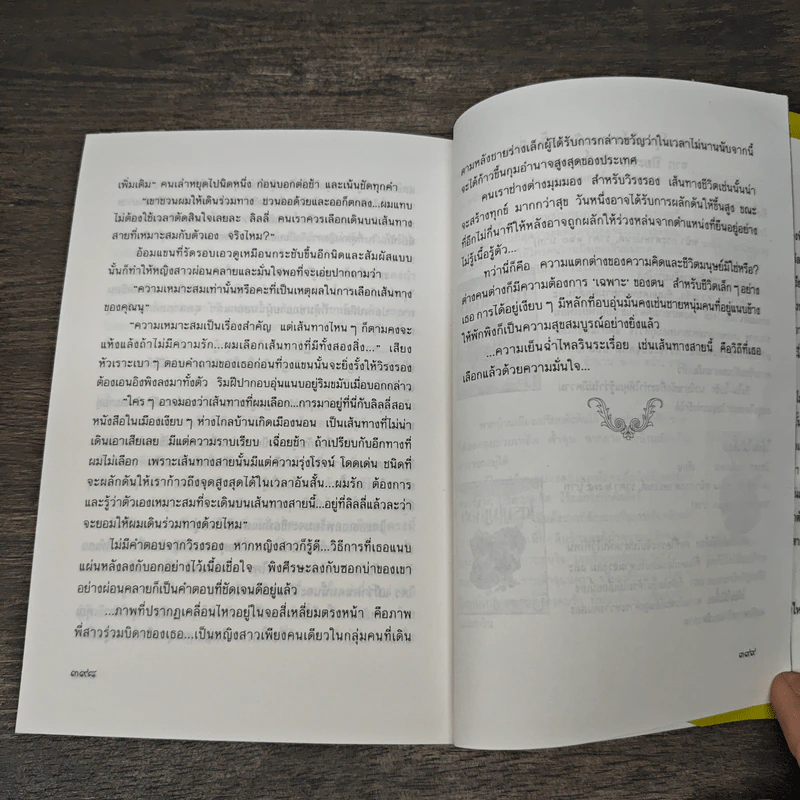 เพิ่มเติม” คนเล่าหยุดไปนิดหนึ่ง ก่อนบอกต่อช้า และเน้นชัดทุกคำ
“เขาชวนผมให้เดินร่วมทาง ชวนออดีด้วยและออก็ตกลง...ผมแทบ
ไม่ต้องใช้เวลาตัดสินใจเลยละ ลิลลี่ คนเราควรเลือกเดินบนเส้นทาง
สายที่เหมาะสมกับตัวเอง จริงไหม?”
อ้อมแขนที่รัดรอบเอวดูเหมือนกระชับขึ้นอีกนิดและสัมผัสแบบ
นั้นก็ทำให้หญิงสาวผ่อนคลายและมั่นใจพอที่จะเอ่ยปากถามว่า
“ความเหมาะสมเท่านั้นหรือคะที่เป็นเหตุผลในการเลือกเส้นทาง
ของคุณนุ”
“ความเหมาะสมเป็นเรื่องสำคัญ แต่เส้นทางไหน ๆ ก็ตามคงจะ
แห้งแล้งถ้าไม่มีความรัก...ผมเลือกเส้นทางที่มีทั้งสองสิ่ง...” เสียง
หัวเราะเบา ๆ ตอบคำถามของเธอก่อนที่วงแขนนั้นจะยิ่งรั้งให้วิรงรอง
ต้องเอนอิงพิงลงมาทั้งตัว ริมฝีปากอบอุ่นแนบอยู่ริมขมับเมื่อบอกกล่าว
“ใคร ๆ อาจมองว่าเส้นทางที่ผมเลือก...การมาอยู่ที่นี่กับลิลลี่สอน
หนังสือในเมืองเงียบ ๆ ห่างไกลบ้านเกิดเมืองนอน เป็นเส้นทางที่ไม่น่า
เดินเอาเสียเลย มีแต่ความราบเรียบ เฉื่อยช้า ถ้าเปรียบกับอีกทางที่
ผมไม่เลือก เพราะเส้นทางสายนั้นมีแต่ความรุ่งโรจน์ โดดเด่น ชนิดที่
จะผลักดันให้เราก้าวถึงจุดสูงสุดได้ในเวลาอันสั้น...ผมรัก ต้องการ
และรู้ว่าตัวเองเหมาะสมที่จะเดินบนเส้นทางสายนี้...อยู่ที่ลิลลี่แล้วละว่า
จะยอมให้ผมเดินร่วมทางด้วยไหม”
ไม่มีคำตอบจากวิรงรอง หากหญิงสาวก็รู้ดี...วิธีการที่เธอแนบ
แผ่นหลังลงกับอกอย่างไว้เนื้อเชื่อใจ พิงศีรษะลงกับซอกบ่าของเขา
อย่างผ่อนคลายก็เป็นคำตอบที่ชัดเจนดีอยู่แล้ว
...ภาพที่ปรากฏเคลื่อนไหวอยู่ในจอสี่เหลี่ยมตรงหน้า คือภาพ
พี่สาวร่วมบิดาของเธอ...เป็นหญิงสาวเพียงคนเดียวในกลุ่มคนที่เดิน
๓๙๘
ตามหลังชายร่างเล็กผู้ได้รับการกล่าวขวัญว่าในเวลาไม่นานนับจากนี้
จะได้ก้าวขึ้นกุมอำนาจสูงสุดของประเทศ
คนเราช่างต่างมุมมอง สำหรับวิรงรอง เส้นทางชีวิตเช่นนั้นน่า
จะสร้างทุกข์ มากกว่าสุข วันหนึ่งอาจได้รับการผลักดันให้ขึ้นสูง ขณะ
ที่อีกไม่กี่นาทีให้หลังอาจถูกผลักให้ร่วงหล่นจากตำแหน่งที่ยืนอยู่อย่าง
ไม่รู้เนื้อรู้ตัว...
ทว่านี่ก็คือ ความแตกต่างของความคิดและชีวิตมนุษย์มิใช่หรือ?
ต่างคนต่างก็มีความต้องการ ‘เฉพาะ’ ของตน สำหรับชีวิตเล็ก ๆ อย่าง
เธอ การได้อยู่เงียบ ๆ มีหลักที่อบอุ่นมั่นคงเช่นชายหนุ่มคนที่อยู่แนบข้าง
ให้พักพิงก็เป็นความสุขสมบูรณ์อย่างยิ่งแล้ว
...ความเย็นฉ่ำไหลรินระเรื่อย เช่นเส้นทางสายนี้ คือวิถีที่เธอ
เลือกแล้วด้วยความมั่นใจ...
๓๙๙